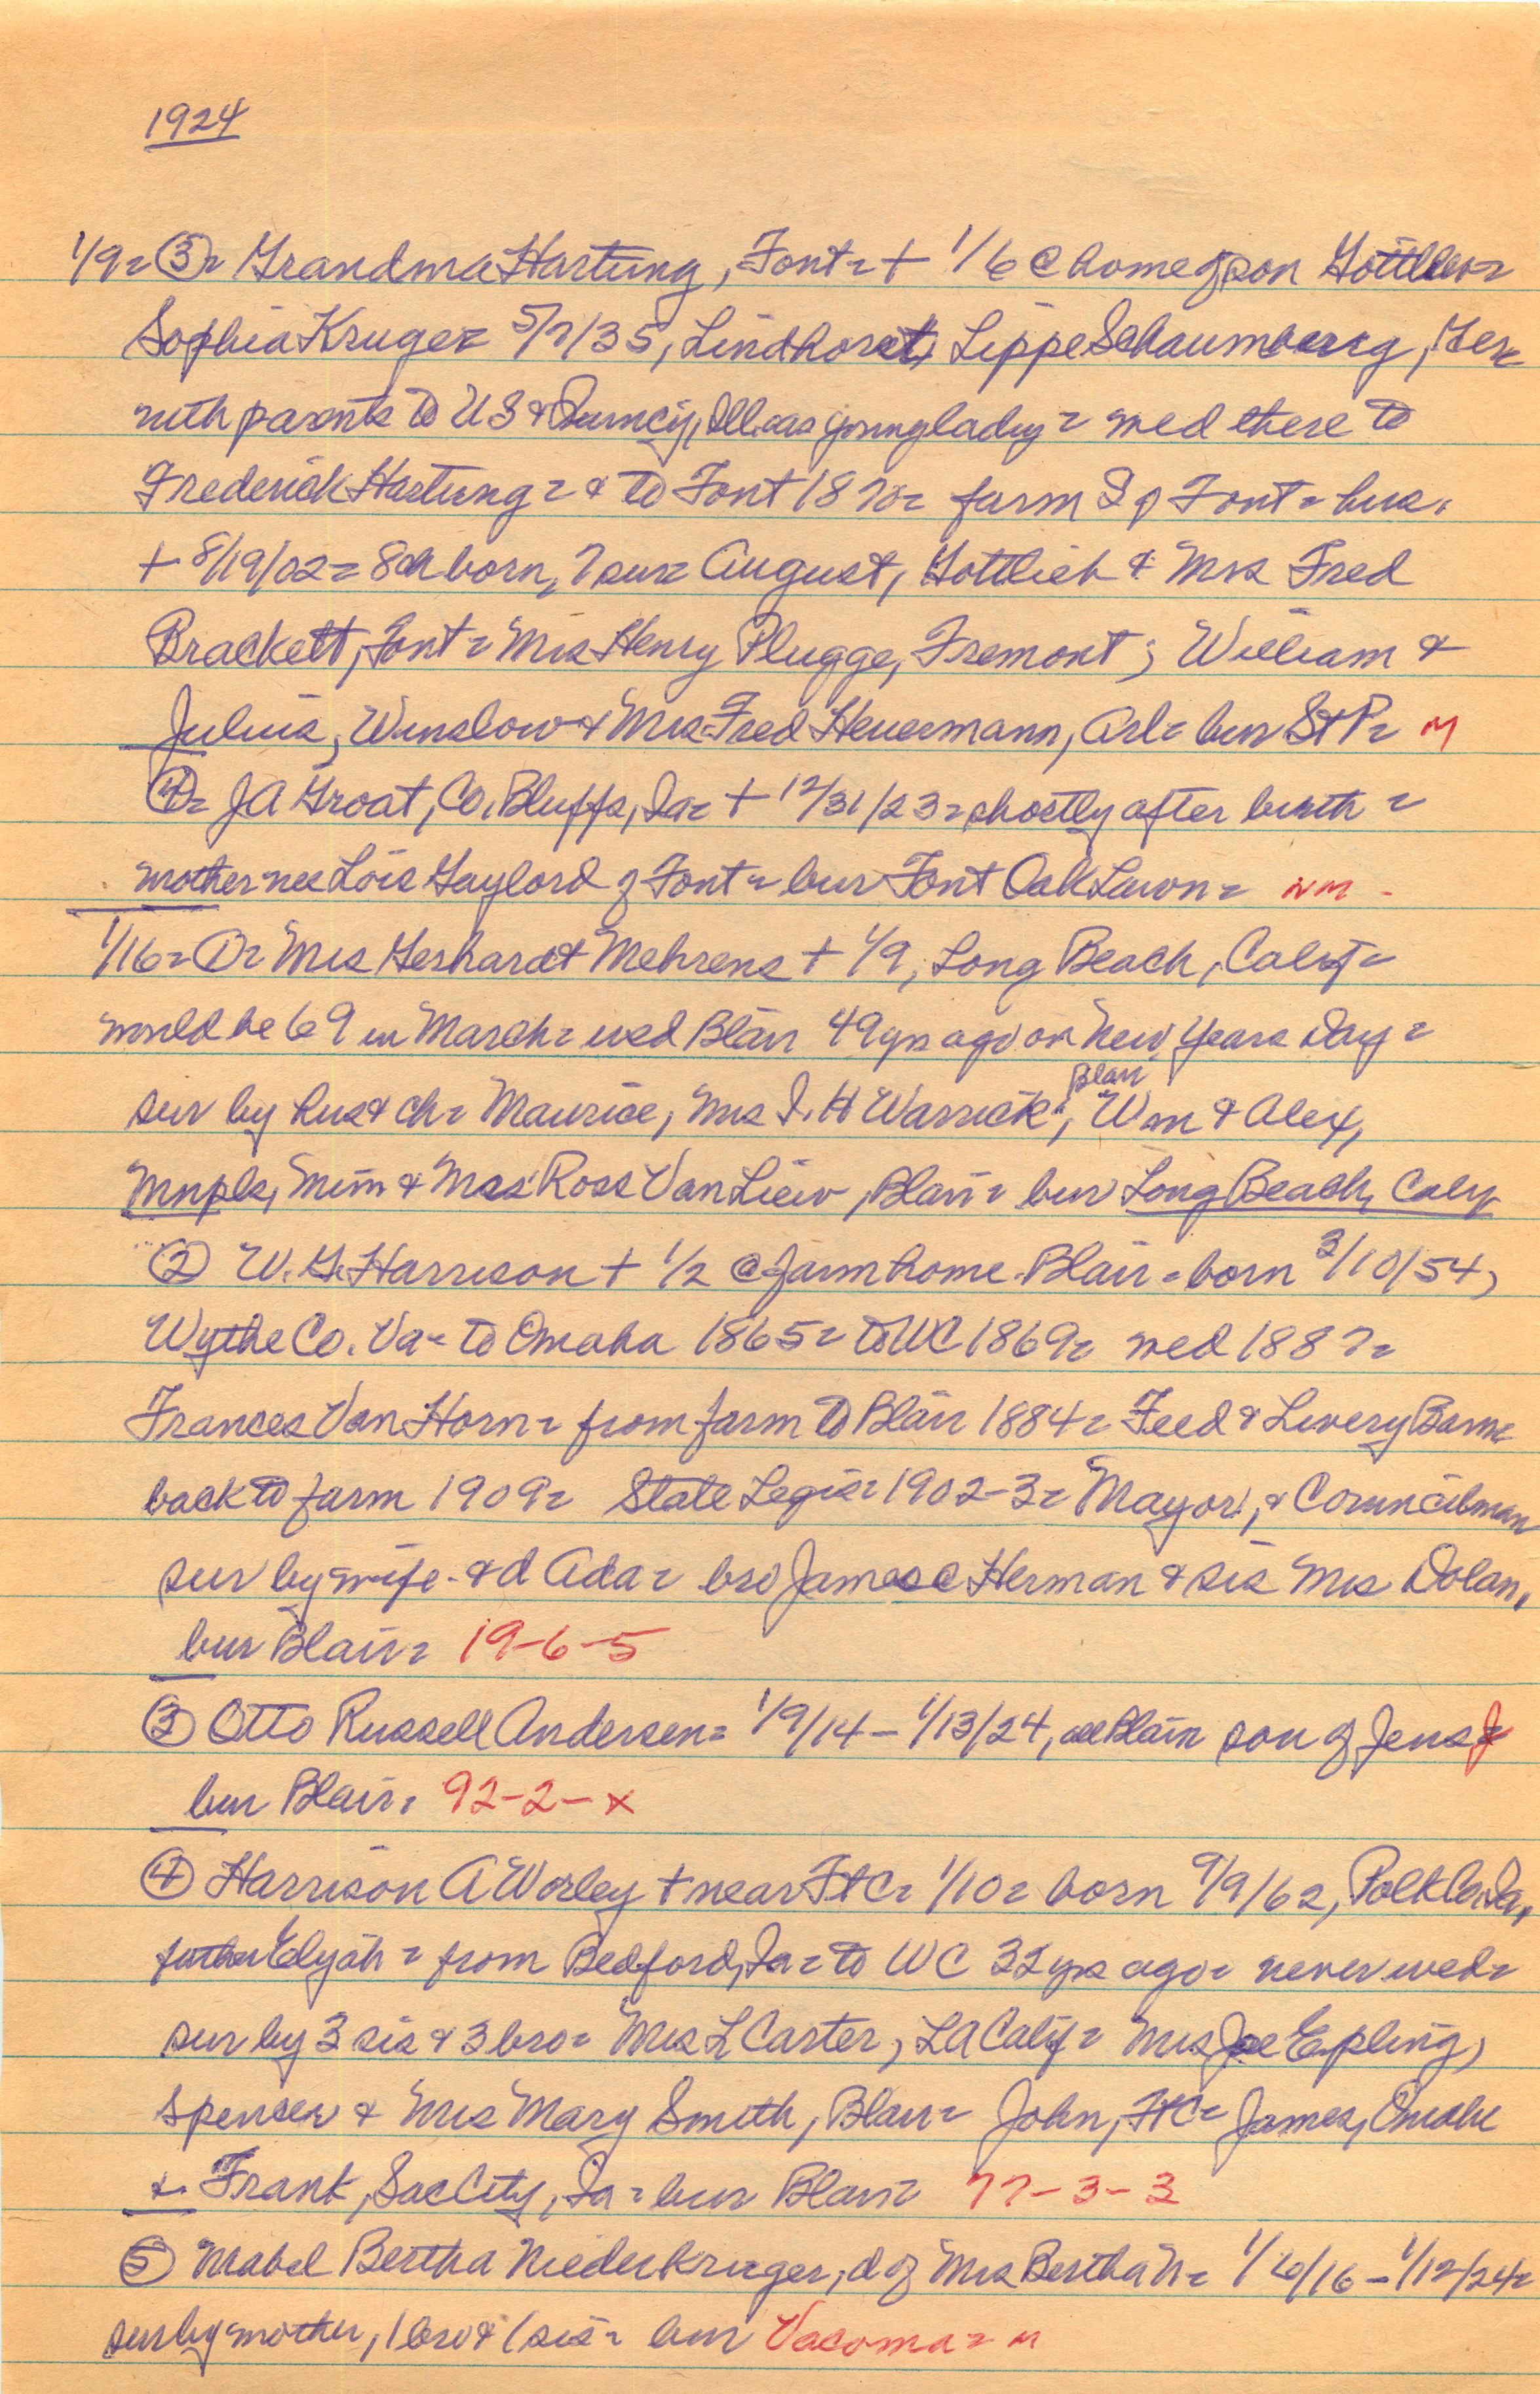 1924
1/9= ③= Grandma Hartung, Font= + 1/6 @ home of son Gottlieb=
Sophia Kruge= 5/7/35, Lindhorst, Lippe Schaumberg, Ger=
with parents to US & Quincy, Ill. as young lady = wed there to
Frederick Hartung = & to Font 1870= farm S of Font = hus.
+ 8/19/02= 8 ch born, 7 sur= August, Gottlieb & Mrs Fred
Brackett, Font = Mrs Henry Plugge, Fremont; William &
Julius, Winslow & Mrs Fred Heuermann, Arl= bur St P= M
④= JA Groat, Co. Bluffs, Ia= + 12/31/23= shortly after birth =
mother nee Lois Gaylord of Font = bur Font Oak Lawn= NM -
1/16= ①= Mrs Gerhardt Mehrens + 1/9, Long Beach, Calif=
would be 69 in March= wed Blair 49 yrs ago on New Years Day =
Blair
sur by hus & ch= Maurice, Mrs I. H Warrick, Wm & Alex,
Mnpls, Minn & Mrs Ross Van Liew, Blair= bur Long Beach, Calif
② W. G. Harrison + 1/2 @ farm home Blair = born 3/10/54,
Wythe Co. Va= to Omaha 1865= to WC 1869= wed 1887=
Frances Van Horn= from farm to Blair 1884= Feed & Livery Barn=
back to farm 1909= State Legis= 1902-3= Mayor, & Councilman
sur by wife - & d Ada= bro James & Herman & sis Mrs Dolan,
bur Blair= 19-6-5
③ Otto Russell Andersen= 1/9/14 - 1/13/24, all Blair son of Jens J
bur Blair. 92-2-x
④ Harrison A Worley + near Ft C= 1/10= born 9/9/62, Polk Co. Ia,
father Elijah = from Bedford, Ia= to WC 32 yrs ago= never wed=
sur by 3 sis & 3 bro= Mrs L Carter, LA Calif= Mrs Joe Epling,
Spencer & Mrs Mary Smith, Blair= John, Ft C= James, Omaha
& Frank, Sac City, Ia = bur Blair= 77-3-3
⑤ Mabel Bertha Niederkruger, d of Mrs Bertha N= 1/6/16 - 1/12/24=
sur by mother, 1 bro & 1 sis= bur Vacoma= M